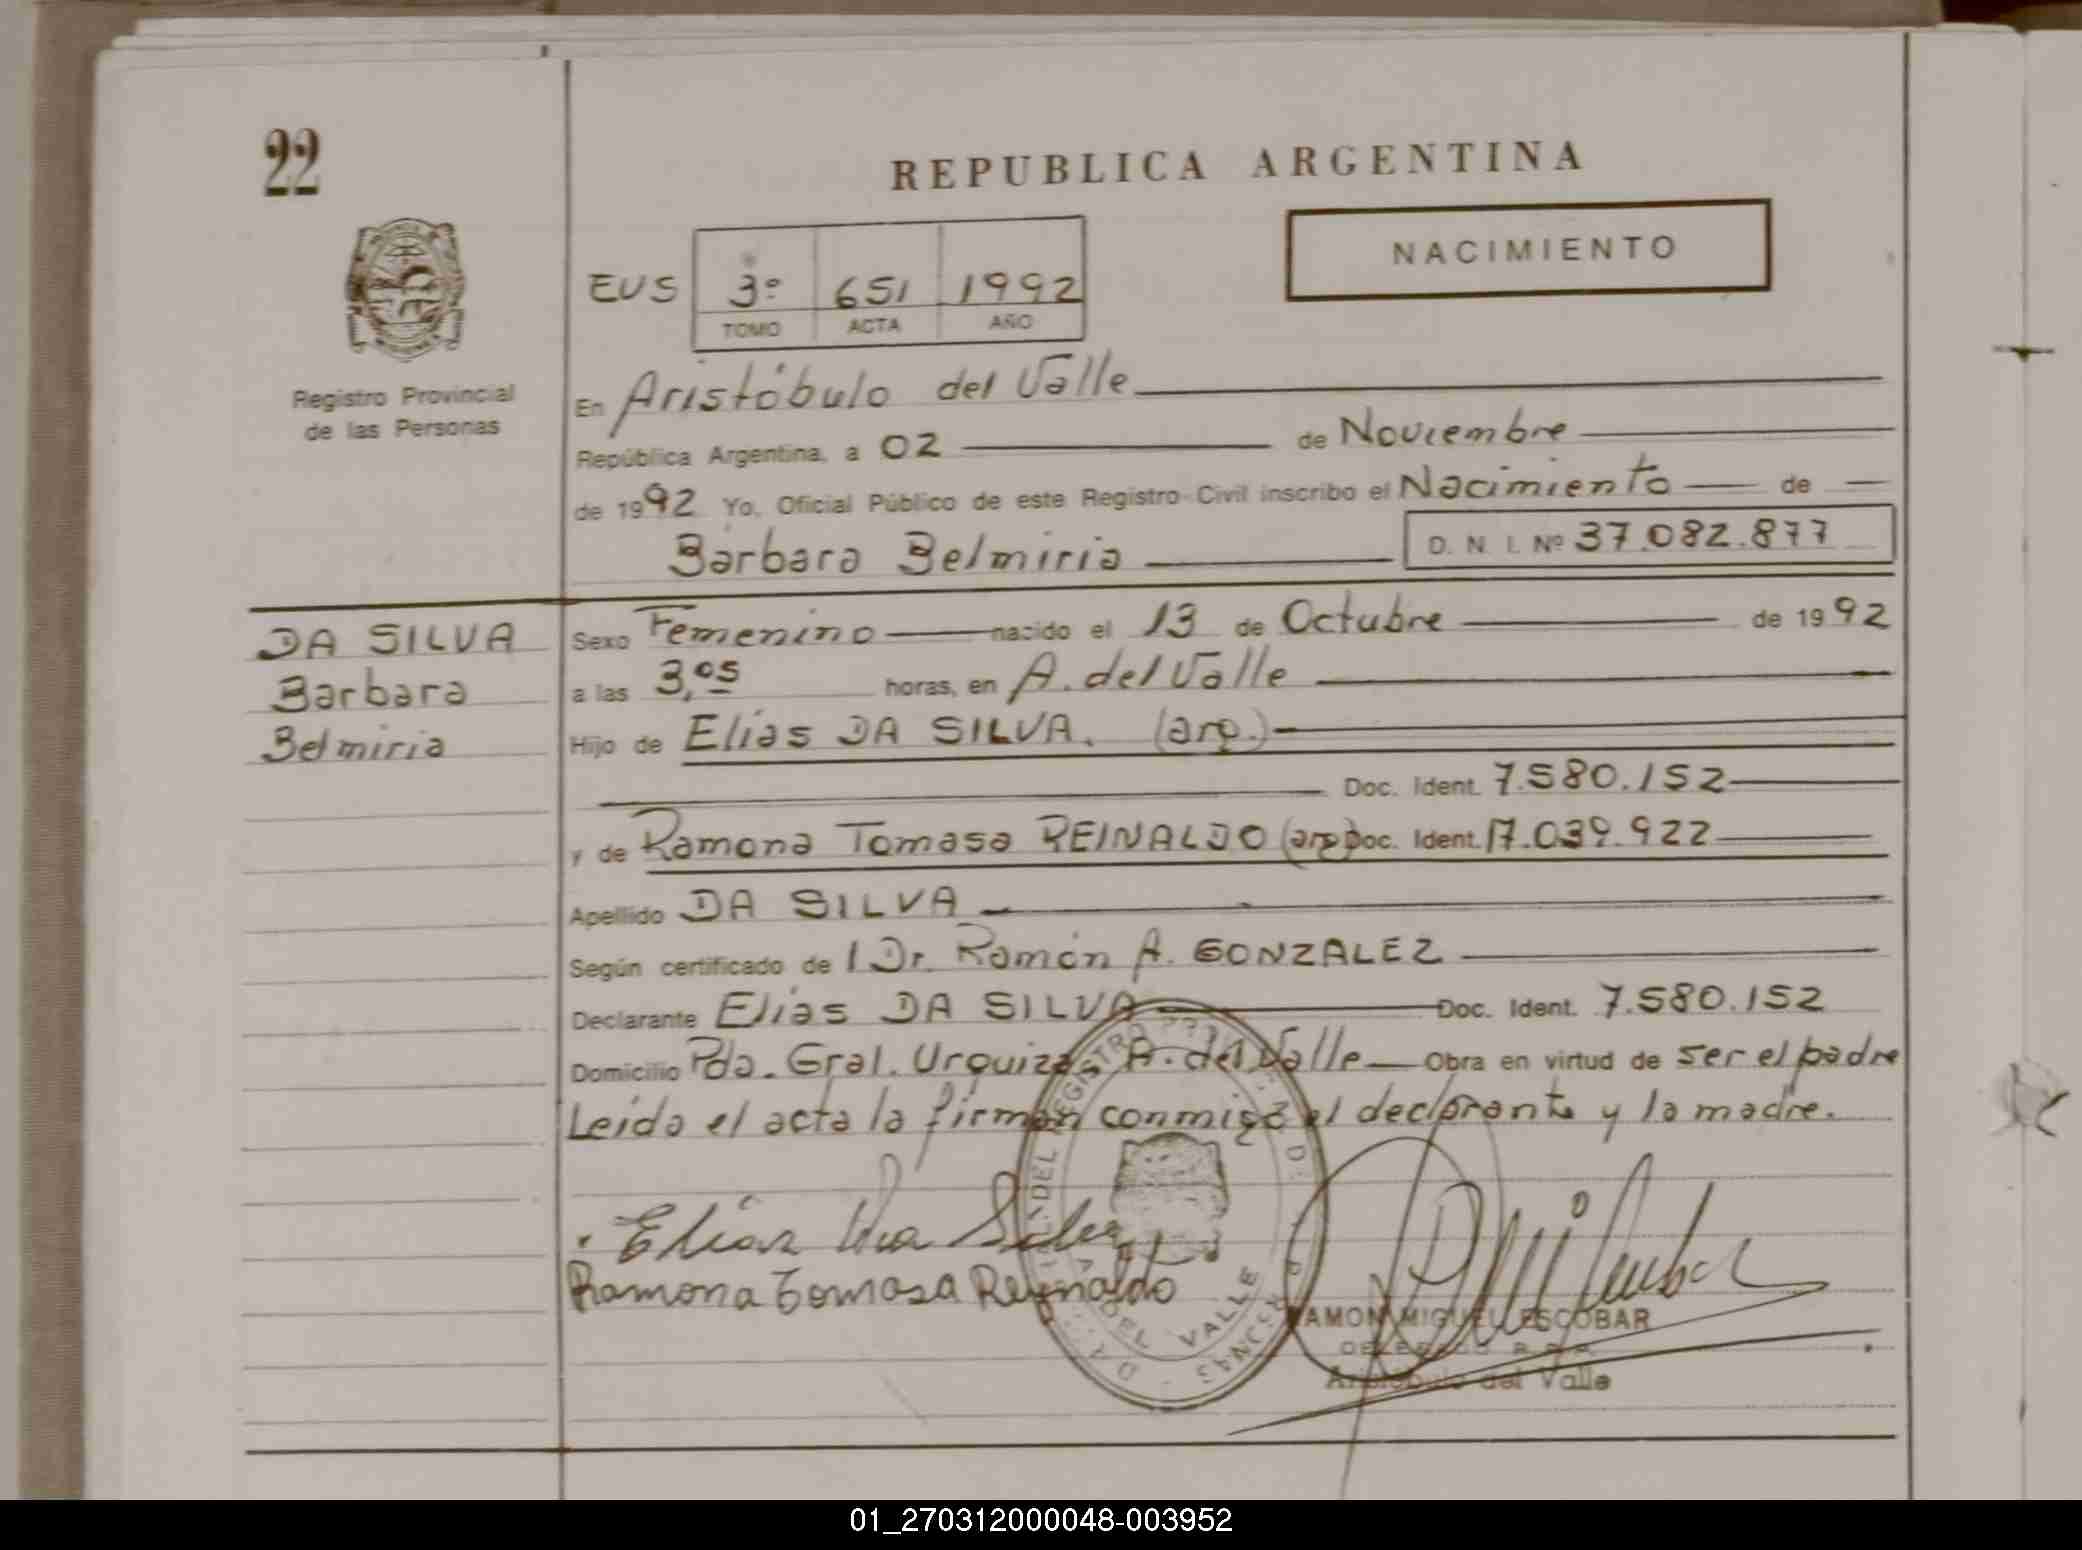 22
REPUBLICA ARGENTINA
NACIMIENTO
EUS 3º 651 1992
TOMO ACTA AÑO
Registro Provincial
de las Personas
En Aristóbulo del Valle
República Argentina, a 02 de Noviembre
de 1992 Yo, Oficial Público de este Registro Civil inscribo el Nacimiento de
Barbara Belmiria D. N. I. Nº 37.082.877
DA SILVA
Barbara
Belmiria
Sexo Femenino nacido el 13 de Octubre de 1992
a las 3,05 horas, en A. del Valle
Hijo de Elias DA SILVA. (arg.)
Doc. Ident. 7.580.152
y de Ramona Tomasa REINALDO (arg) Doc. Ident. 17.039.922
Apellido DA SILVA
Según certificado de l Dr. Ramón A. GONZALEZ
Declarante Elias DA SILVA Doc. Ident. 7.580.152
Domicilio Pda. Gral. Urquiza A. del Valle Obra en virtud de ser el padre
Leida el acta la firman conmigo el declarante y la madre.
Elias Da Silva
Ramona Tomasa Reynaldo
DEL VALLE
RAMON MIGUEL ESCOBAR
Aristóbulo del Valle
01_270312000048-003952